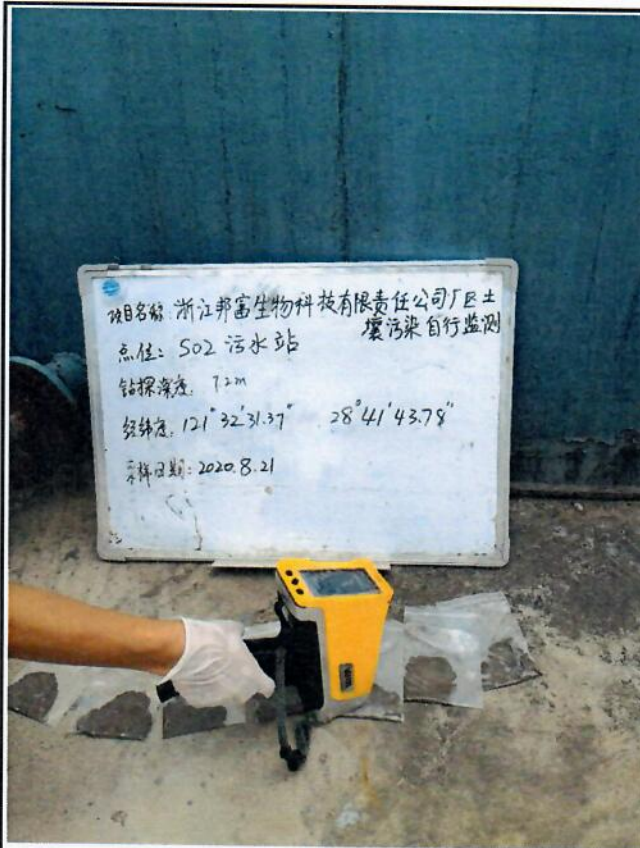 项目名称:浙江邦富生物科技有限责任公司厂区土
壤污染自行监测
点位:S02 污水站
钻探深度:7.2m
经纬度:121°32'31.37" 28°41'43.78"
采样日期:2020.8.21